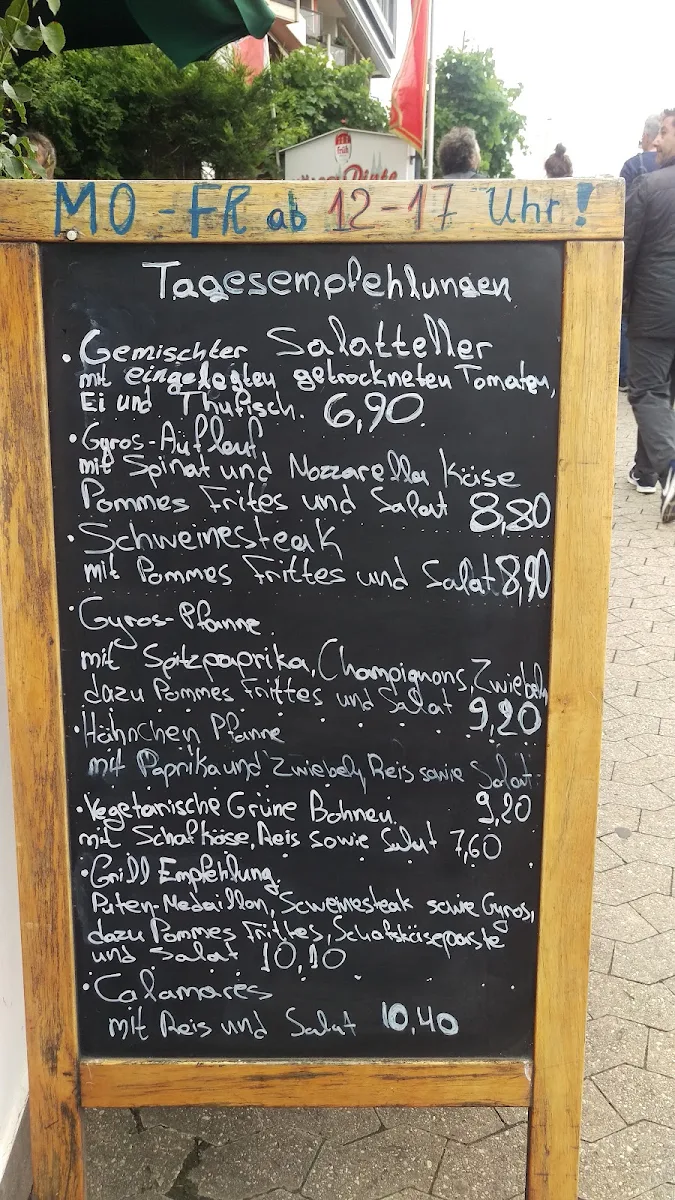 Früh
MO - FR ab 12-17 Uhr!
Tagesempfehlungen
• Gemischter Salatteller
mit eingelegten getrockneten Tomaten,
Ei und Thufisch. 6,90
• Gyros-Auflauf
mit Spinat und Mozzarella Käse
Pommes Frites und Salat 8,80
• Schweinesteak
mit Pommes Frittes und Salat 8,90
• Gyros-Pfanne
mit Spitzpaprika, Champignons, Zwiebeln
dazu Pommes Frittes und Salat 9,20
• Hähnchen Pfanne
mit Paprika und Zwiebeln, Reis sowie Salat
• Vegetarische Grüne Bohnen. 9,20
mit Schafkäse, Reis sowie Salat 7,60
• Grill Empfehlung
Puten-Medaillon, Scweinesteak sowie Gyros,
dazu Pommes Frittes, Schafskäsepaste
und Salat 10,10
• Calamares
mit Reis und Salat 10,40